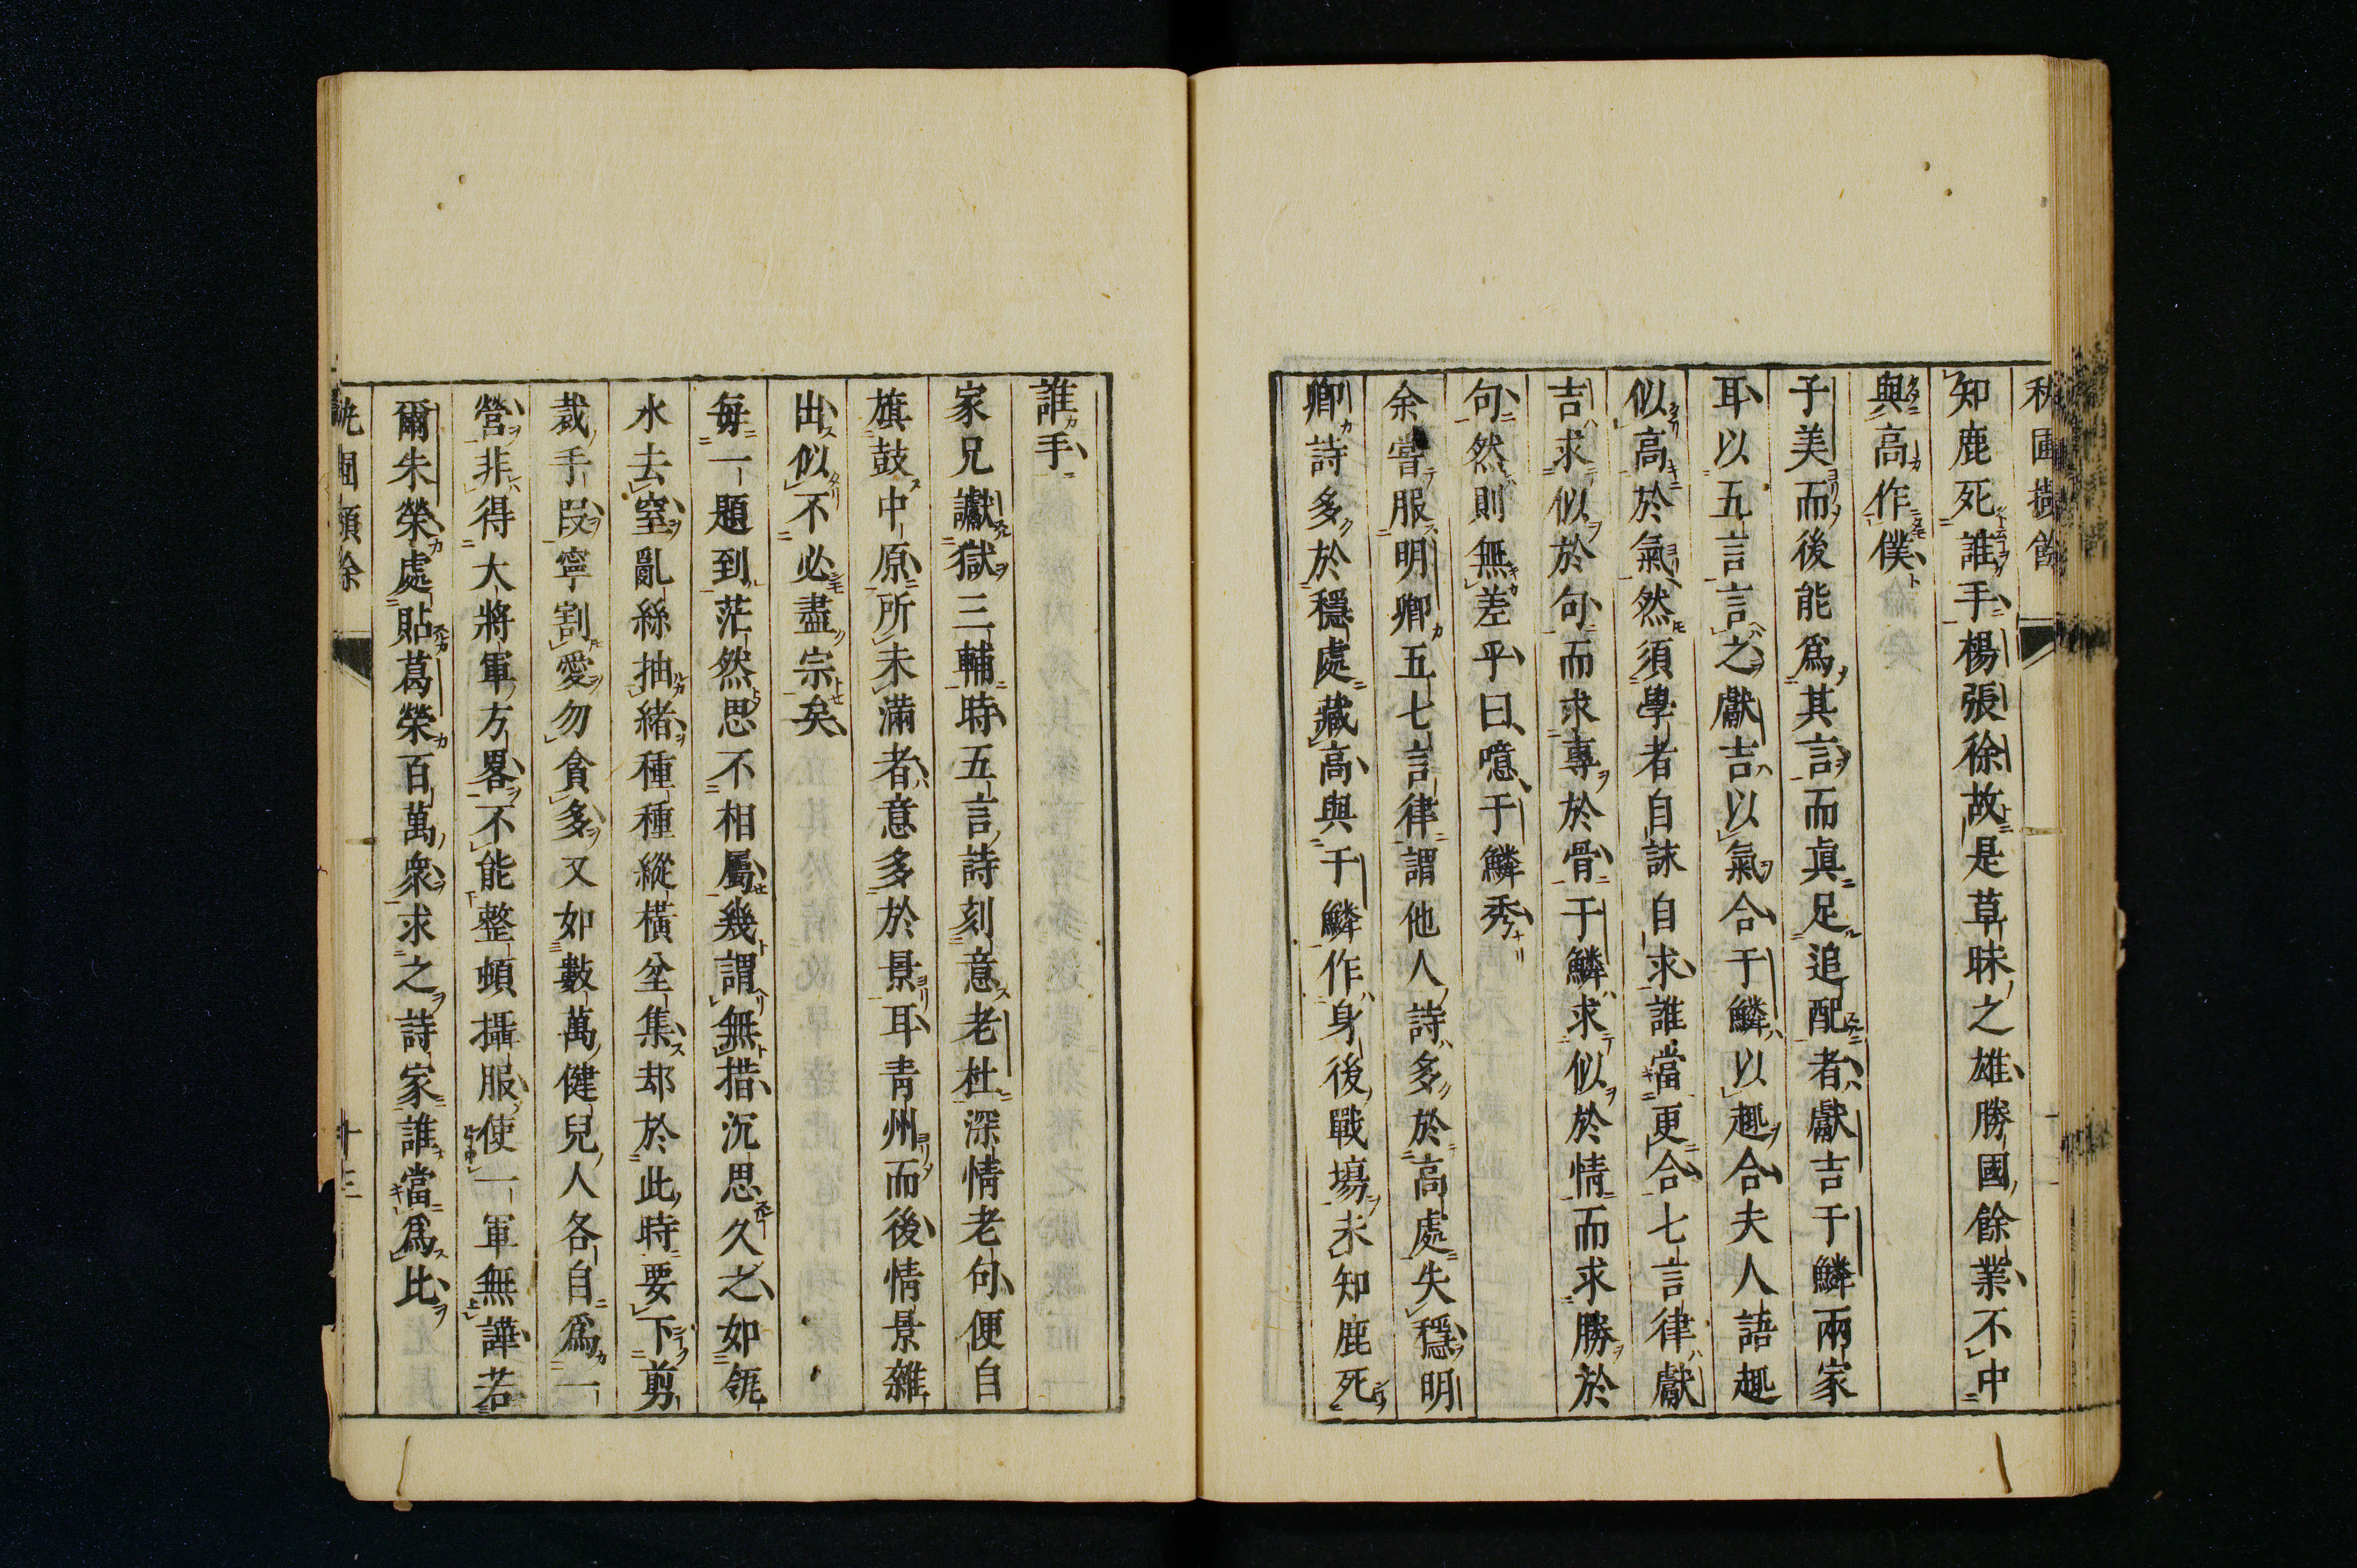 秇圃擷餘
知鹿死誰手楊張徐故是草昧之雄勝國餘業不中
與高作僕
子美而後能爲其言而眞足追配者獻吉于鱗兩家
耳以五言言之獻吉以氣合于鱗以趣合夫人語趣
似高於氣然須學者自誺自求誰當更合七言律獻
吉求似於句而求專於骨于鱗求似於情而求勝於
句然則無差乎曰噫于鱗秀
余嘗服明卿五七言律謂他人詩多於高處失穩明
卿詩多於穩處藏高與于鱗作身後戰塲未知鹿死
誰手
家兄讞獄三輔時五言詩刻意老杜深情老句便自
旗鼓中原所未滿者意多於景耳青州而後情景雜
出似不必盡宗矣
每一題到茫然思不相屬幾謂無措沉思久之如瓴
水去窒亂絲抽緒種種縱橫坌集却於此時要下剪
裁手叚寧割愛勿貪多又如數萬健兒人各自爲一
營非得大將軍方畧不能整頓攝服使一軍無譁若
爾朱榮處貼葛榮百萬衆求之詩家誰當爲比
十三